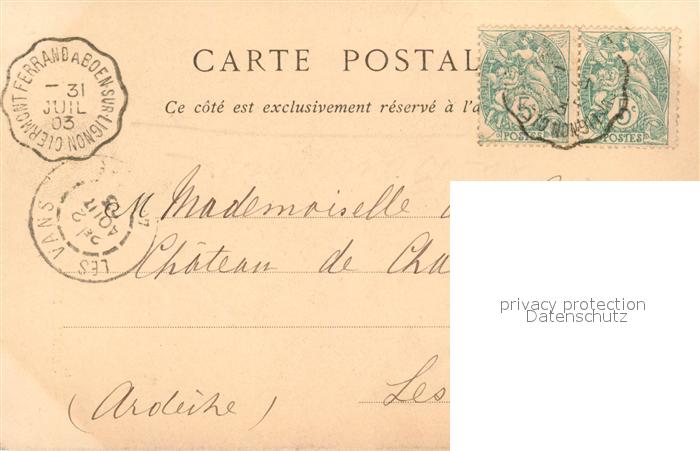 CARTE POSTAL
Ce côté est exclusivement réservé à l'a
CLERMONT FERRAND A BOEN-SUR-LIGNON
- 31
JUIL
03
5 5c
POSTES POSTES
LES VANS
2E
AOUT
03
M Mademoiselle
Château de Cha
Les
(Ardèche)
privacy protection
Datenschutz